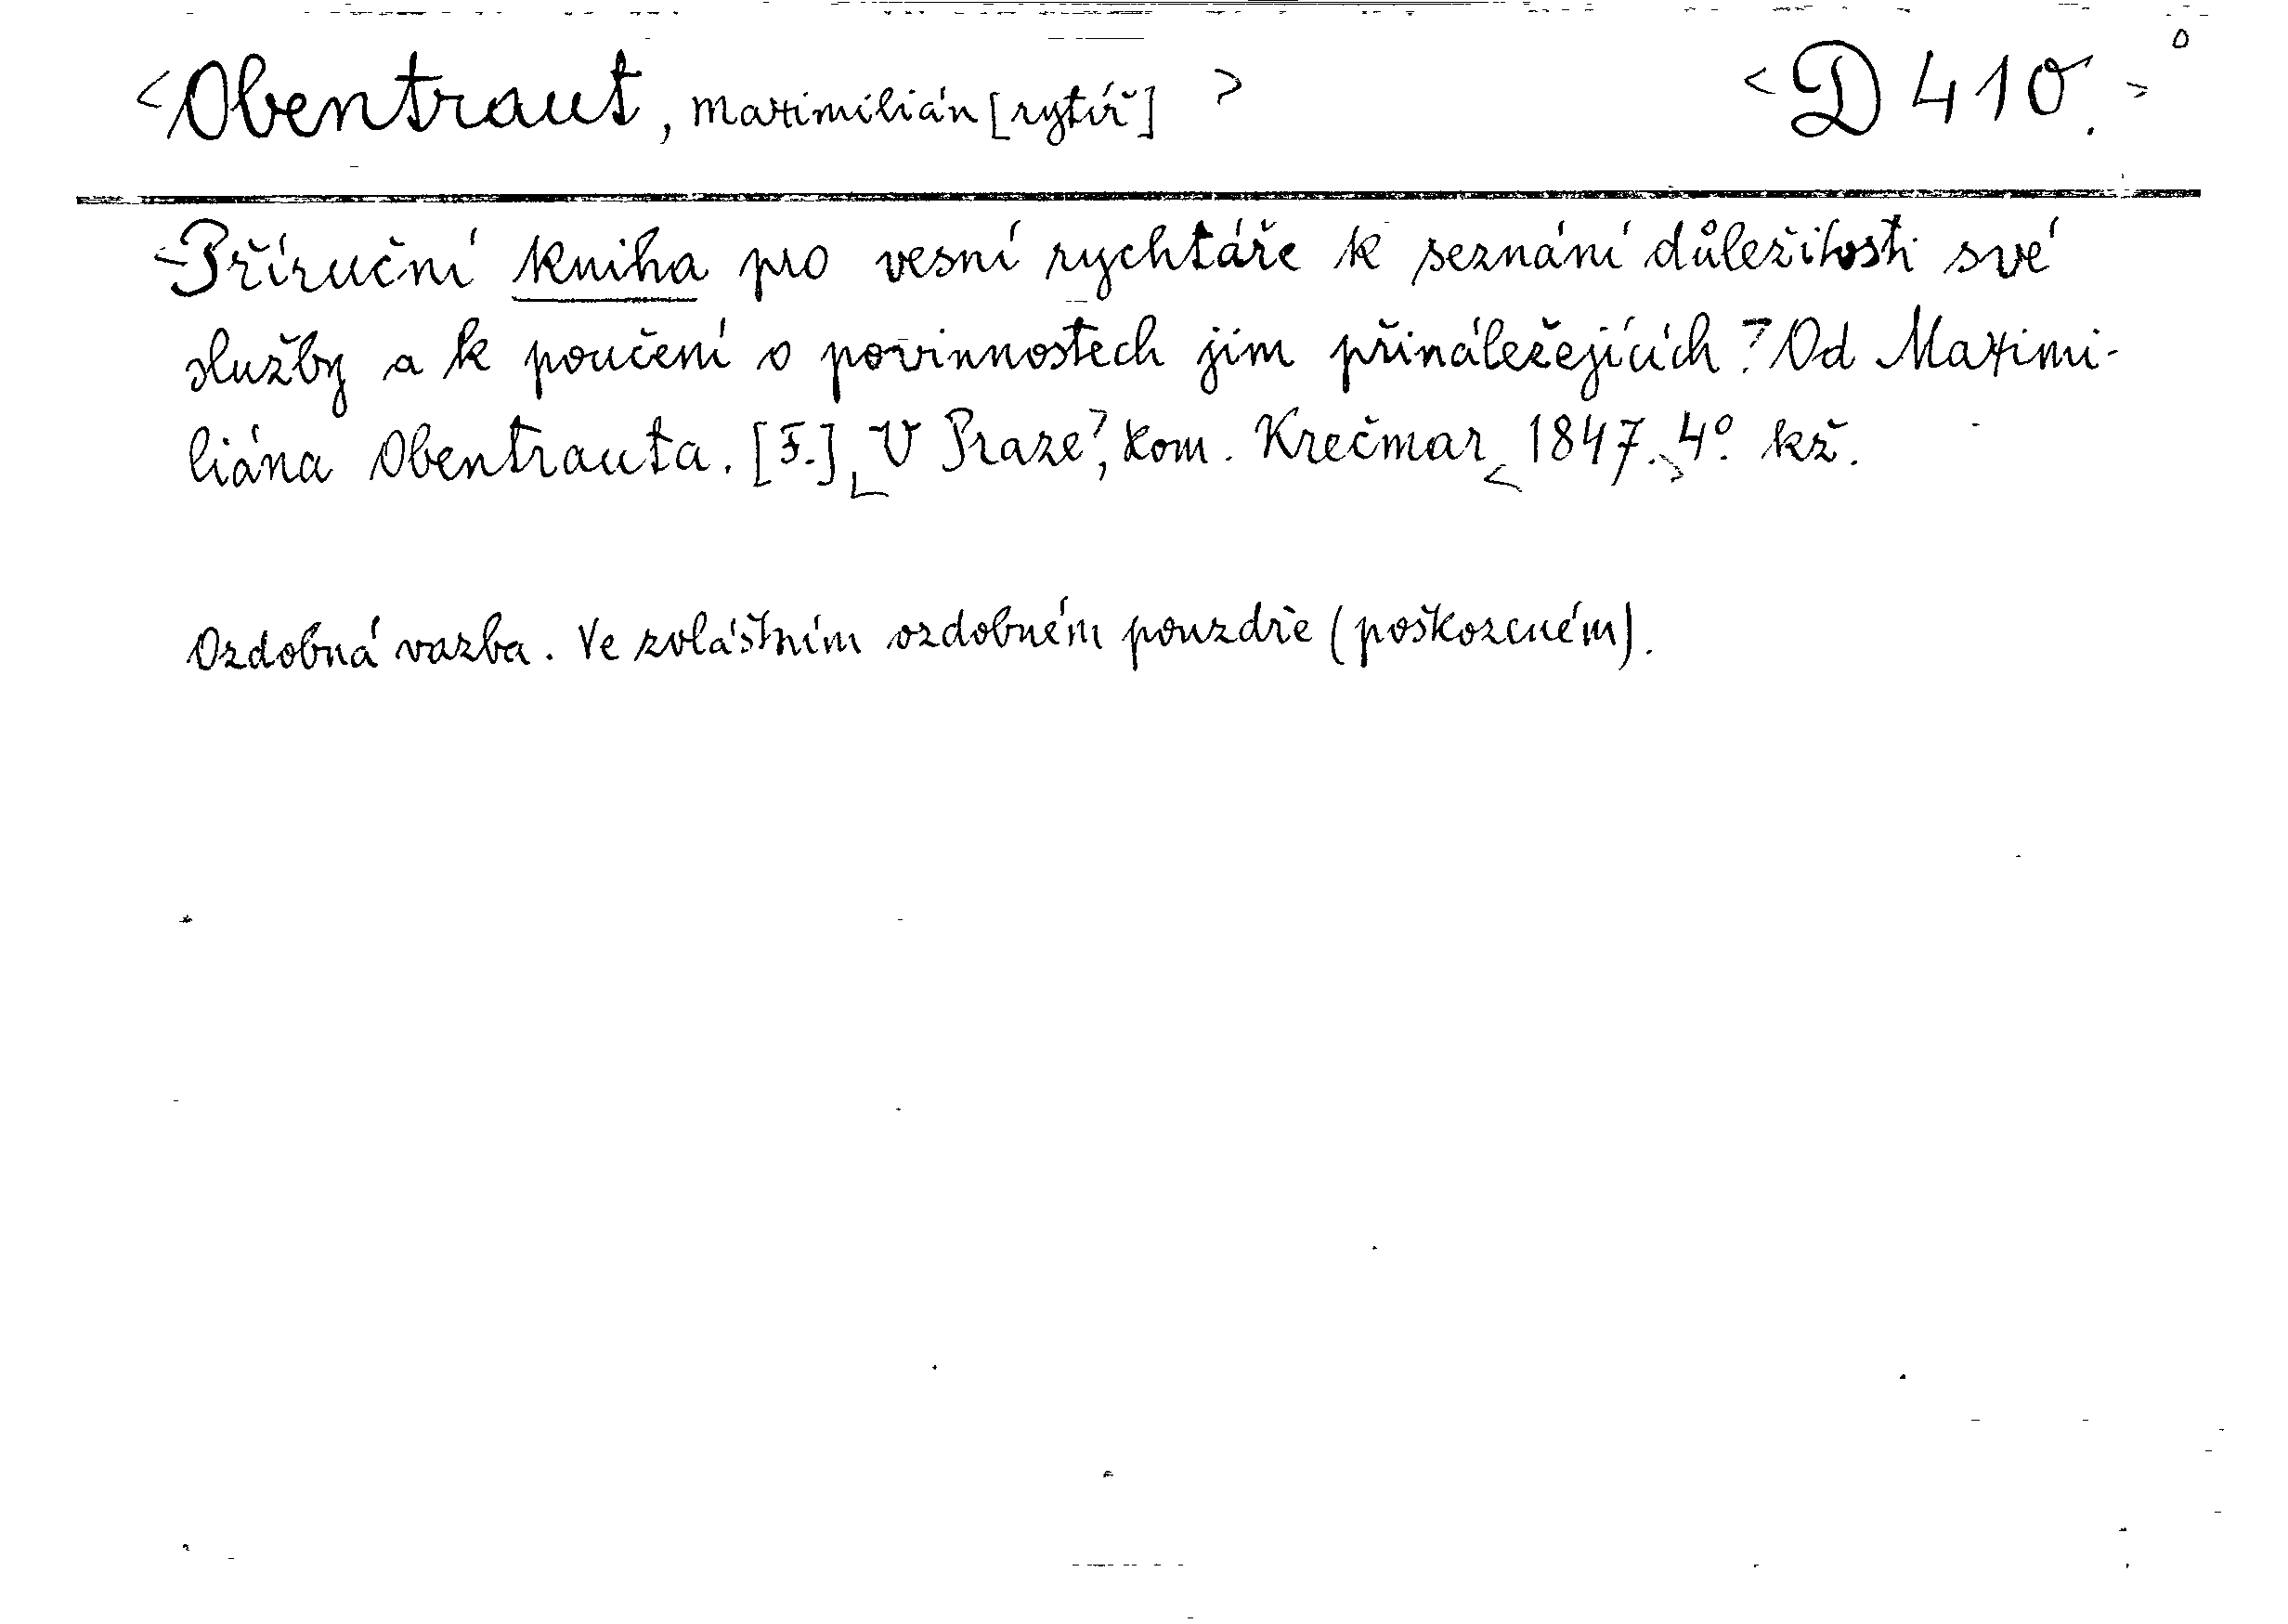 <Obentraut, Maximilián [rytíř]> <D 410.>
<Příruční kniha pro vesní rychtáře k seznání důležitosti své
služby a k poučení o povinnostech jim přináležejících. Od Maximi-
liána Obentrauta. [F.] V Praze, kom. Krečmar <1847.> 4° kž.
Ozdobná vazba. Ve zvláštním ozdobném pouzdře (poškozeném).